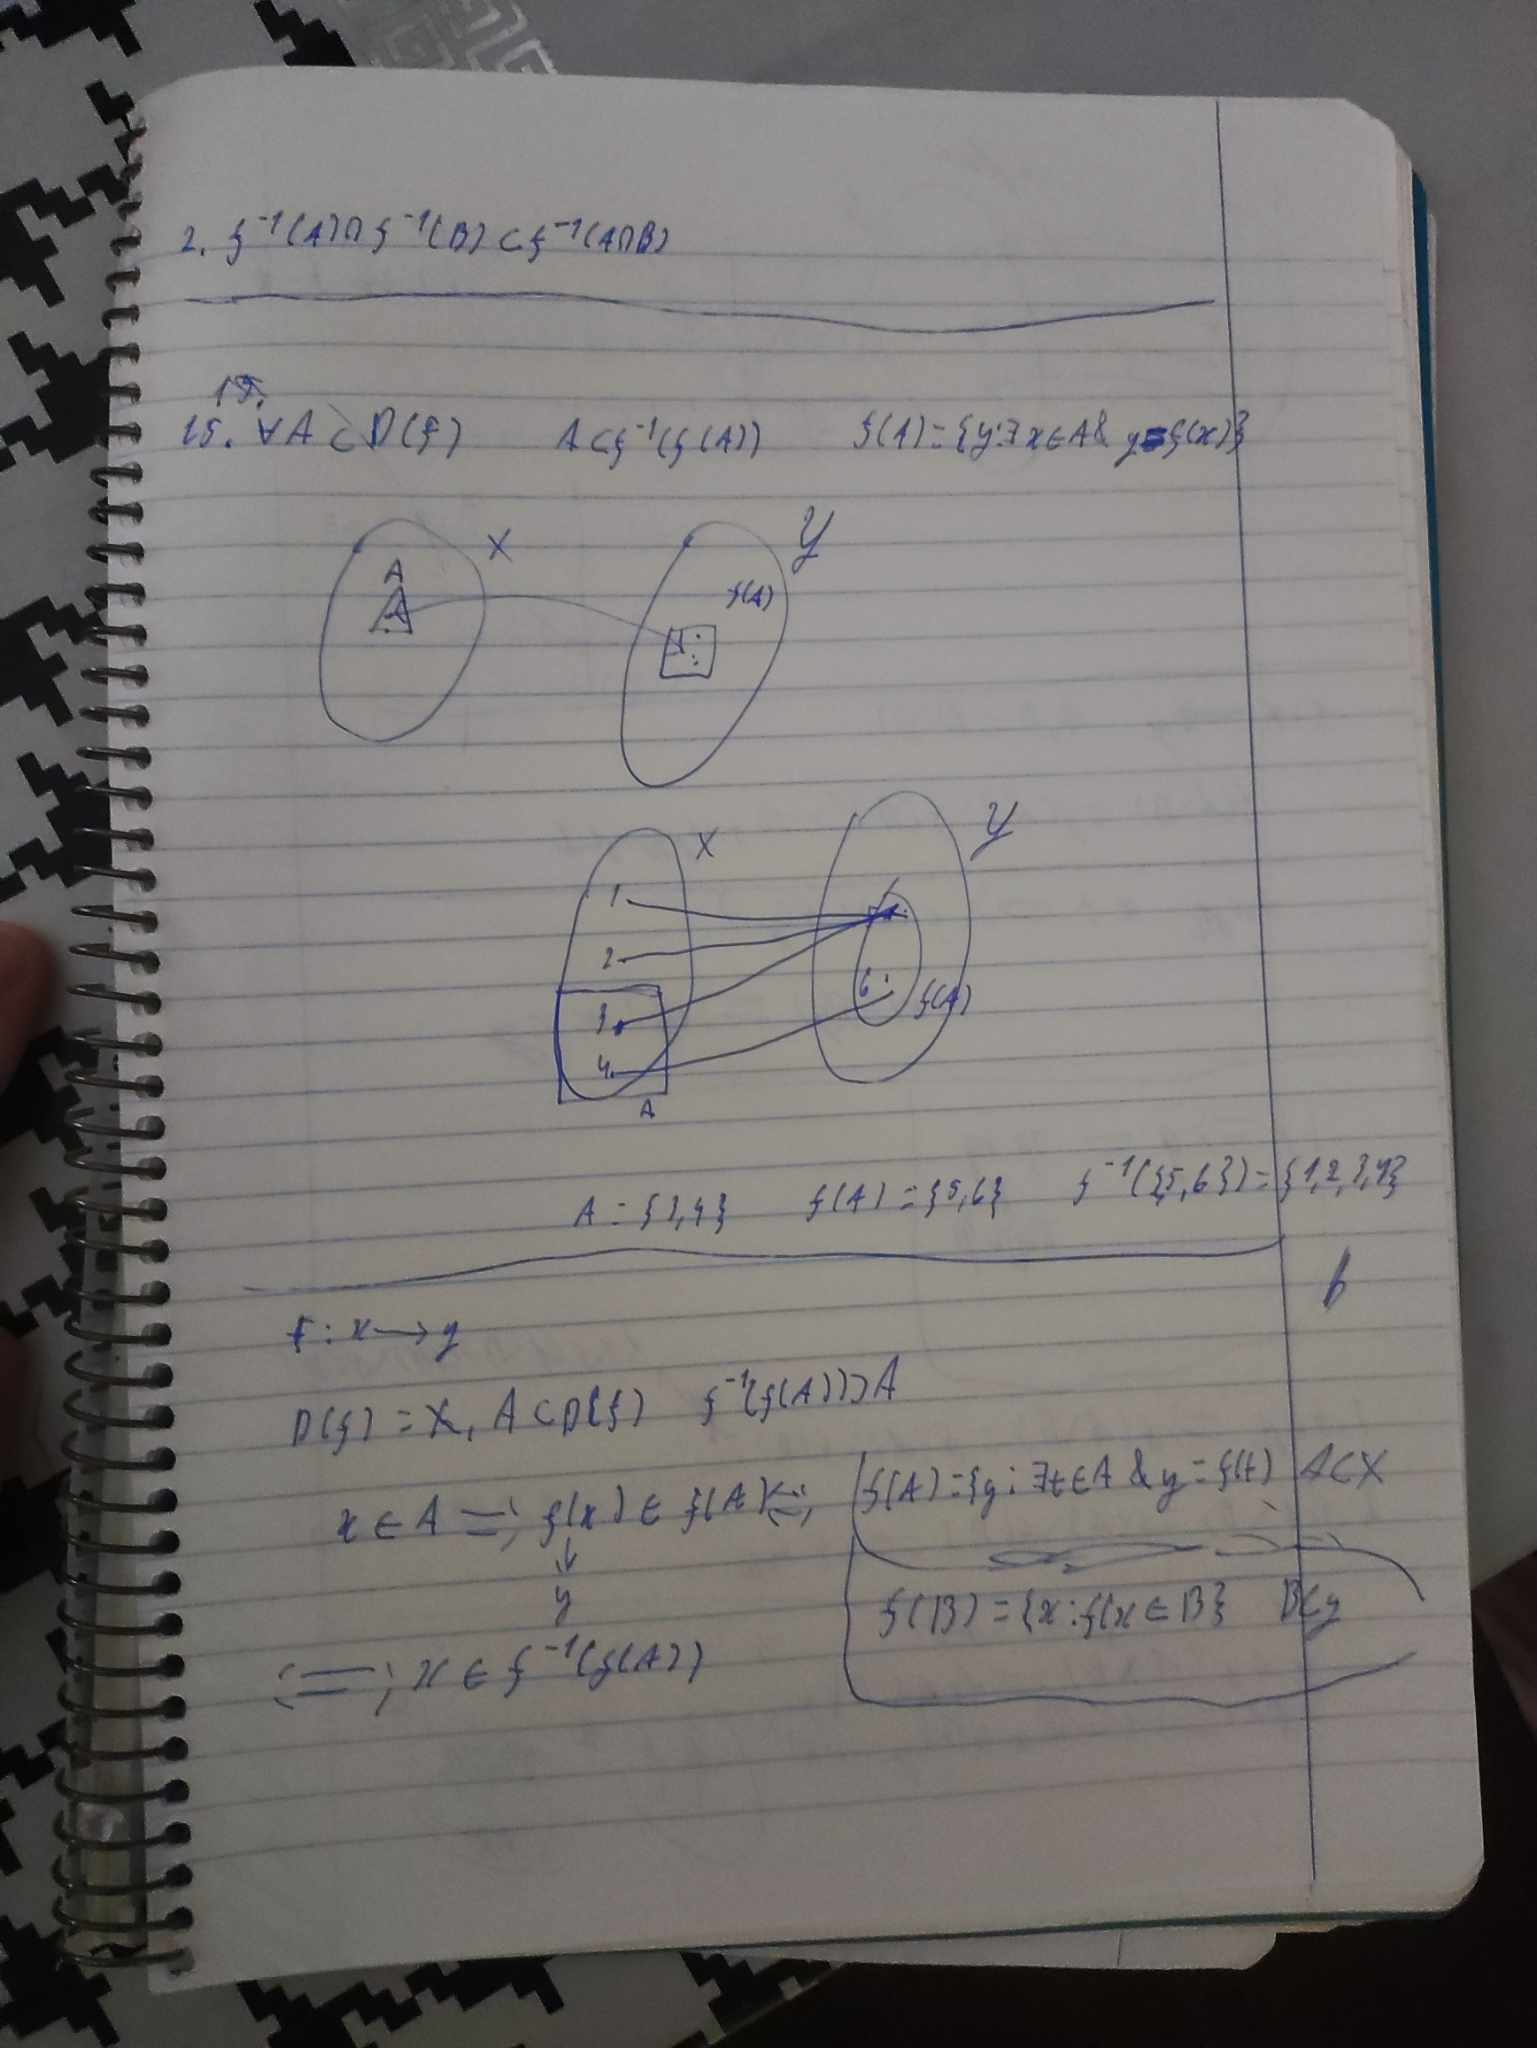 2. f⁻¹(A)∩f⁻¹(B)⊂f⁻¹(A∩B)
15.
15. ∀A⊂D(f) A⊂f⁻¹(f(A)) f(A)={y:∃x∈A& y=f(x)}
X Y
A f(A)
X Y
1
2
3 6 f(A)
4
A
A={3,4} f(A)={5,6} f⁻¹({5,6})={1,2,3,4}
f:x→y
D(f)=X, A⊂D(f) f⁻¹(f(A))⊃A
x∈A => f(x)∈f(A) <=> f(A)={y:∃t∈A & y=f(t) A⊂X
↓
y f(B)={x:f(x∈B} B⊂y
<=> x∈f⁻¹(f(A))